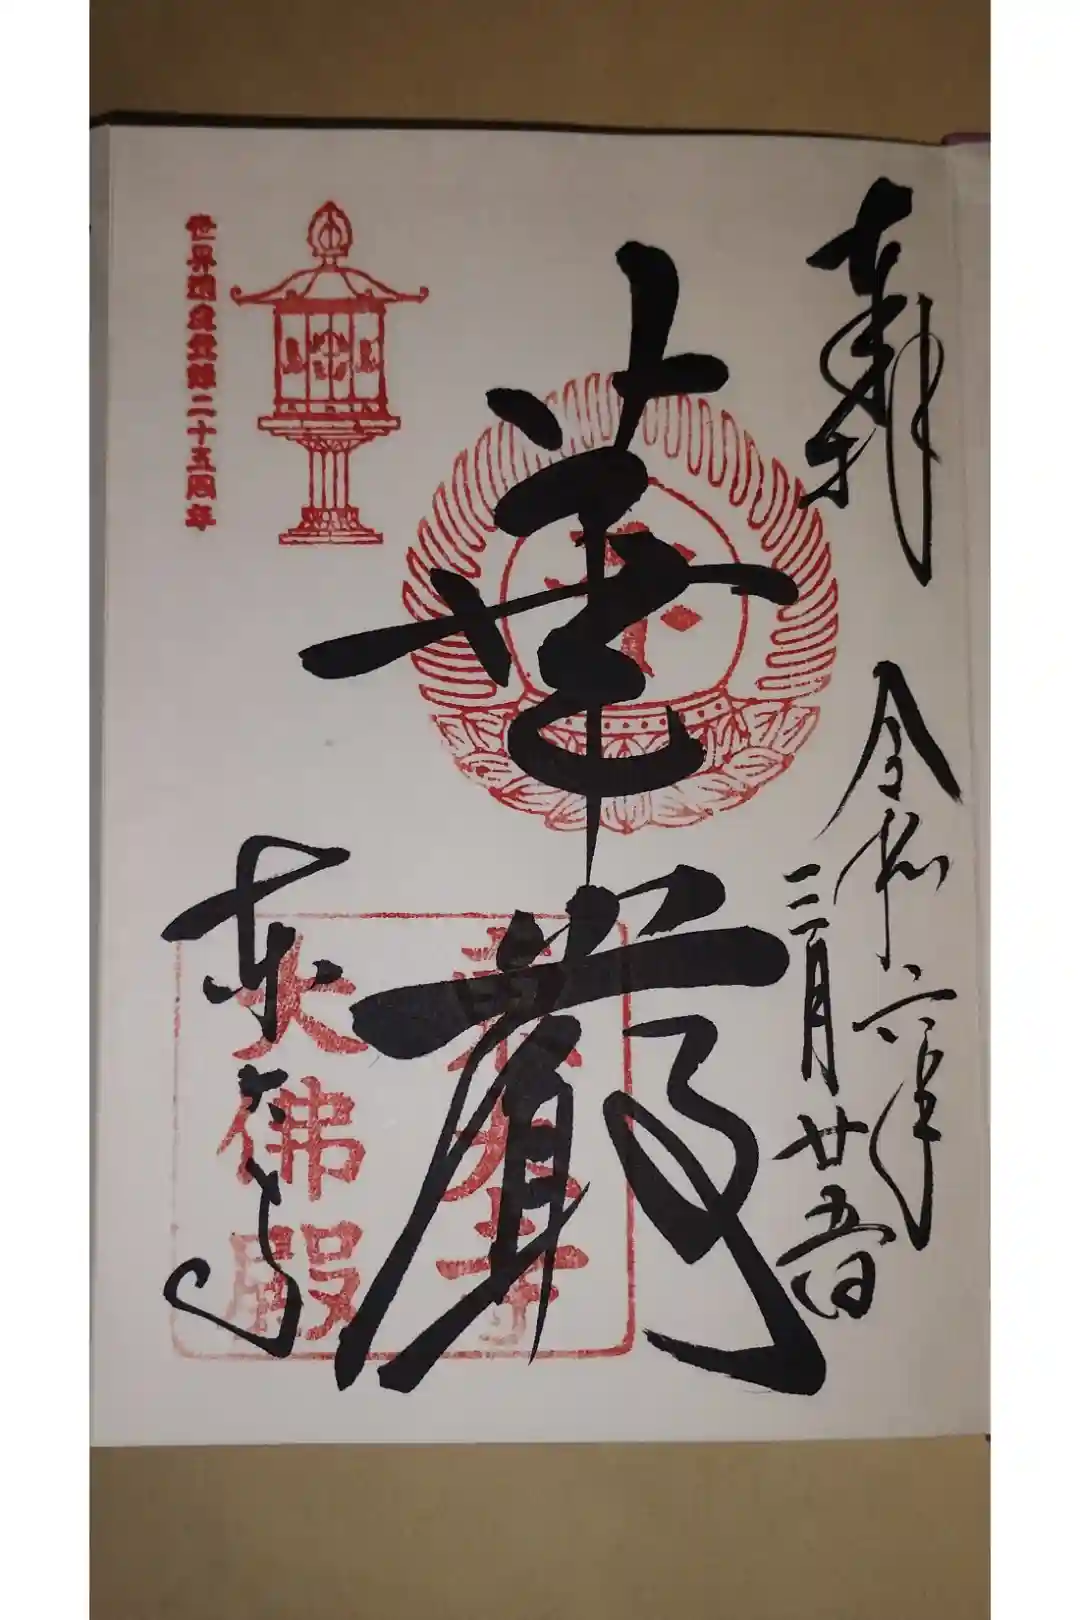 奉拝
令和六年
三月廿五日
華嚴
東大寺
東大寺
大佛殿
世界遺産登録二十五周年